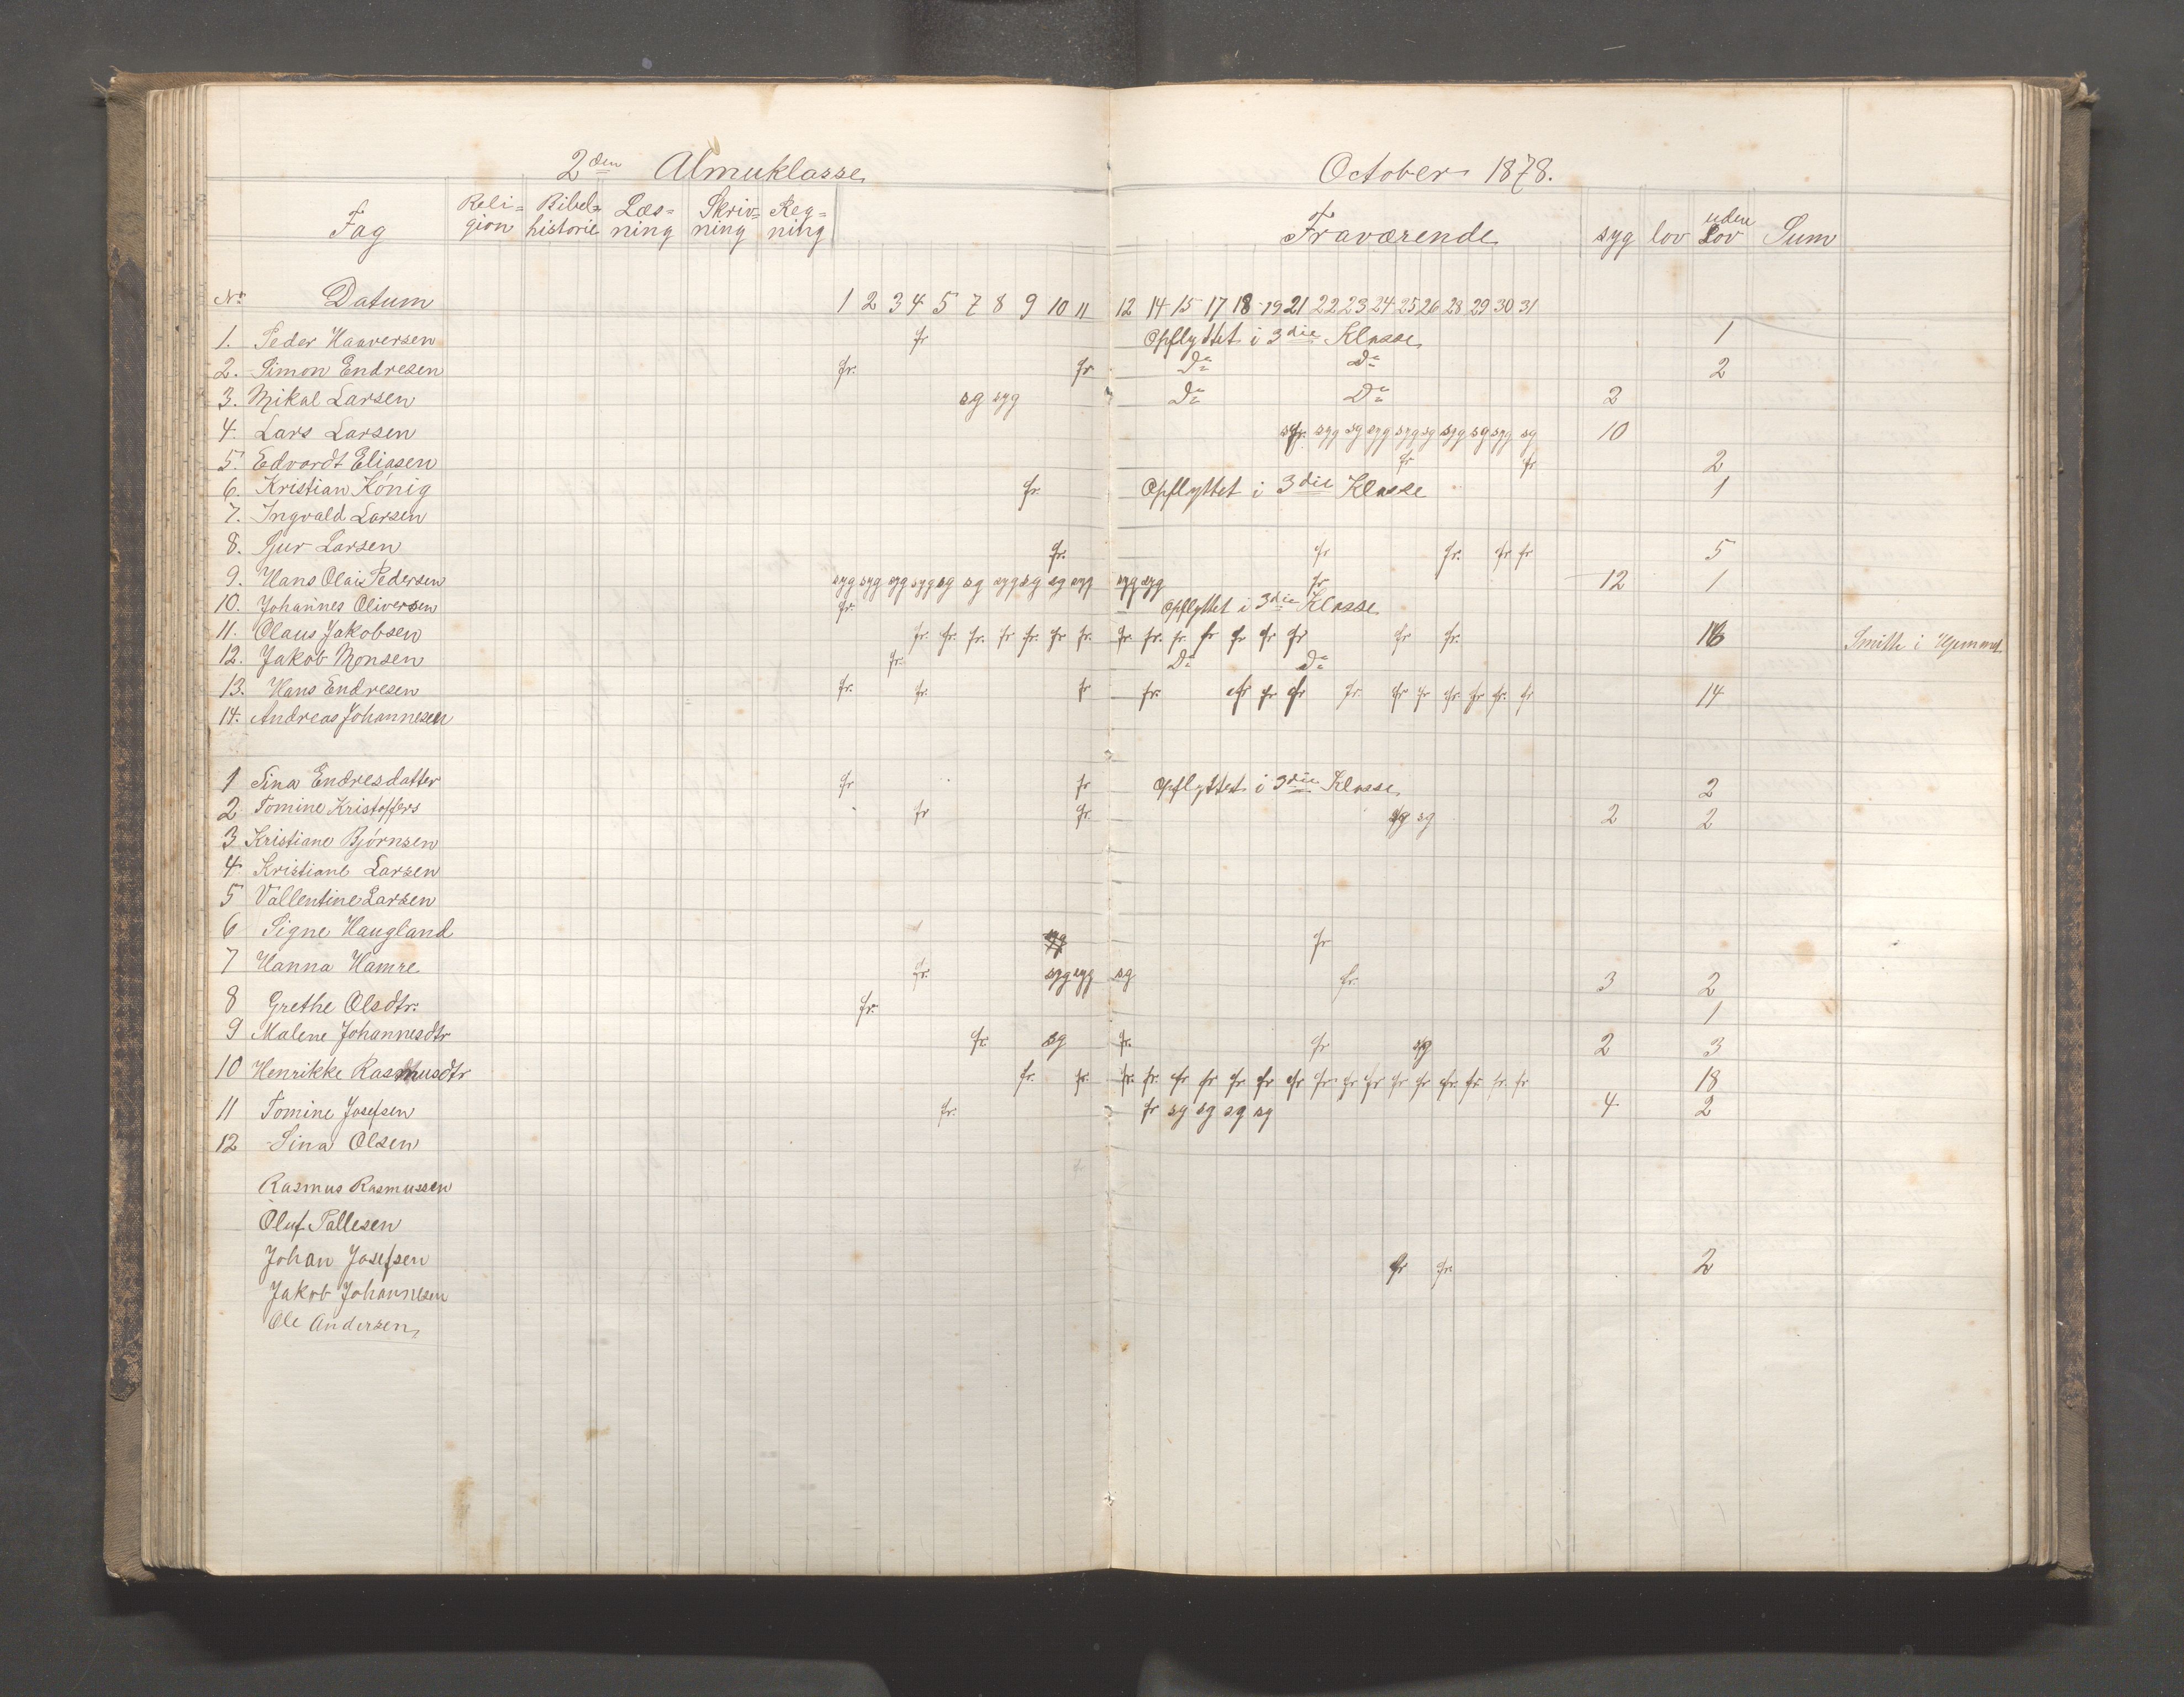 2den Almuklasse October 1878.
Fag Reli= gion Bibel= historie Læs= ning Skriv= ning Reg= ning Fraværende syg lov uden Lov Sum
No Datum 1 2 3 4 5 7 8 9 10 11 12 14 15 17 18 19 21 22 23 24 25 26 28 29 30 31
1. Peder Haaversen fr Opflyttet i 3die Klasse 1
2. Simon Endresen fr. fr Do Do 2
3. Mikal Larsen sg syg Do Do 2
4. Lars Larsen syg sg syg syg sg syg sg syg sg 10
5. Edvardt Eliasen fr fr 2
6. Kristian König fr. Opflyttet i 3die Klasse 1
7. Ingvald Larsen
8. Sjur Larsen fr. fr fr. fr fr 5
9. Hans Olai Pedersen syg syg syg syg sg sg syg sg sg syg syg syg fr 12 1
10. Johannes Oliversen fr. Opflyttet i 3die Klasse
11. Olaus Jakobsen fr. fr. fr. fr fr. fr fr. fr. fr. fr. fr fr fr fr fr fr. 16
12. Jakob Monsen fr. Do Do
13. Hans Endresen fr. fr. fr fr. fr fr fr fr. fr fr fr. fr fr. fr 14
14. Andreas Johannesen
1 Sina Endresdatter fr fr Opflyttet i 3die Klasse 2
2 Tomine Kristoffers fr fr sg sg 2 2
3 Kristiane Bjørnsen
4 Kristiane Larsen
5 Vallentine Larsen
6 Signe Haugland fr
7 Hanna Hamre. fr. syg syg sg fr. 3 2
8 Grethe Olsdtr. fr. 1
9 Malene Johannesdtr fr. sg fr. fr sg 2 3
10 Henrikke Rasmusdtr fr. fr. fr. fr. fr fr fr. fr fr fr. fr fr fr fr fr. fr. fr. fr 18
11 Tomine Josefsen fr. fr sg sg sg sg 4 2
12 Sina Olsen
Rasmus Rasmussen
Oluf Pallesen
Johan Josefsen fr fr. 2
Jakob Johannesen
Ole Andersen